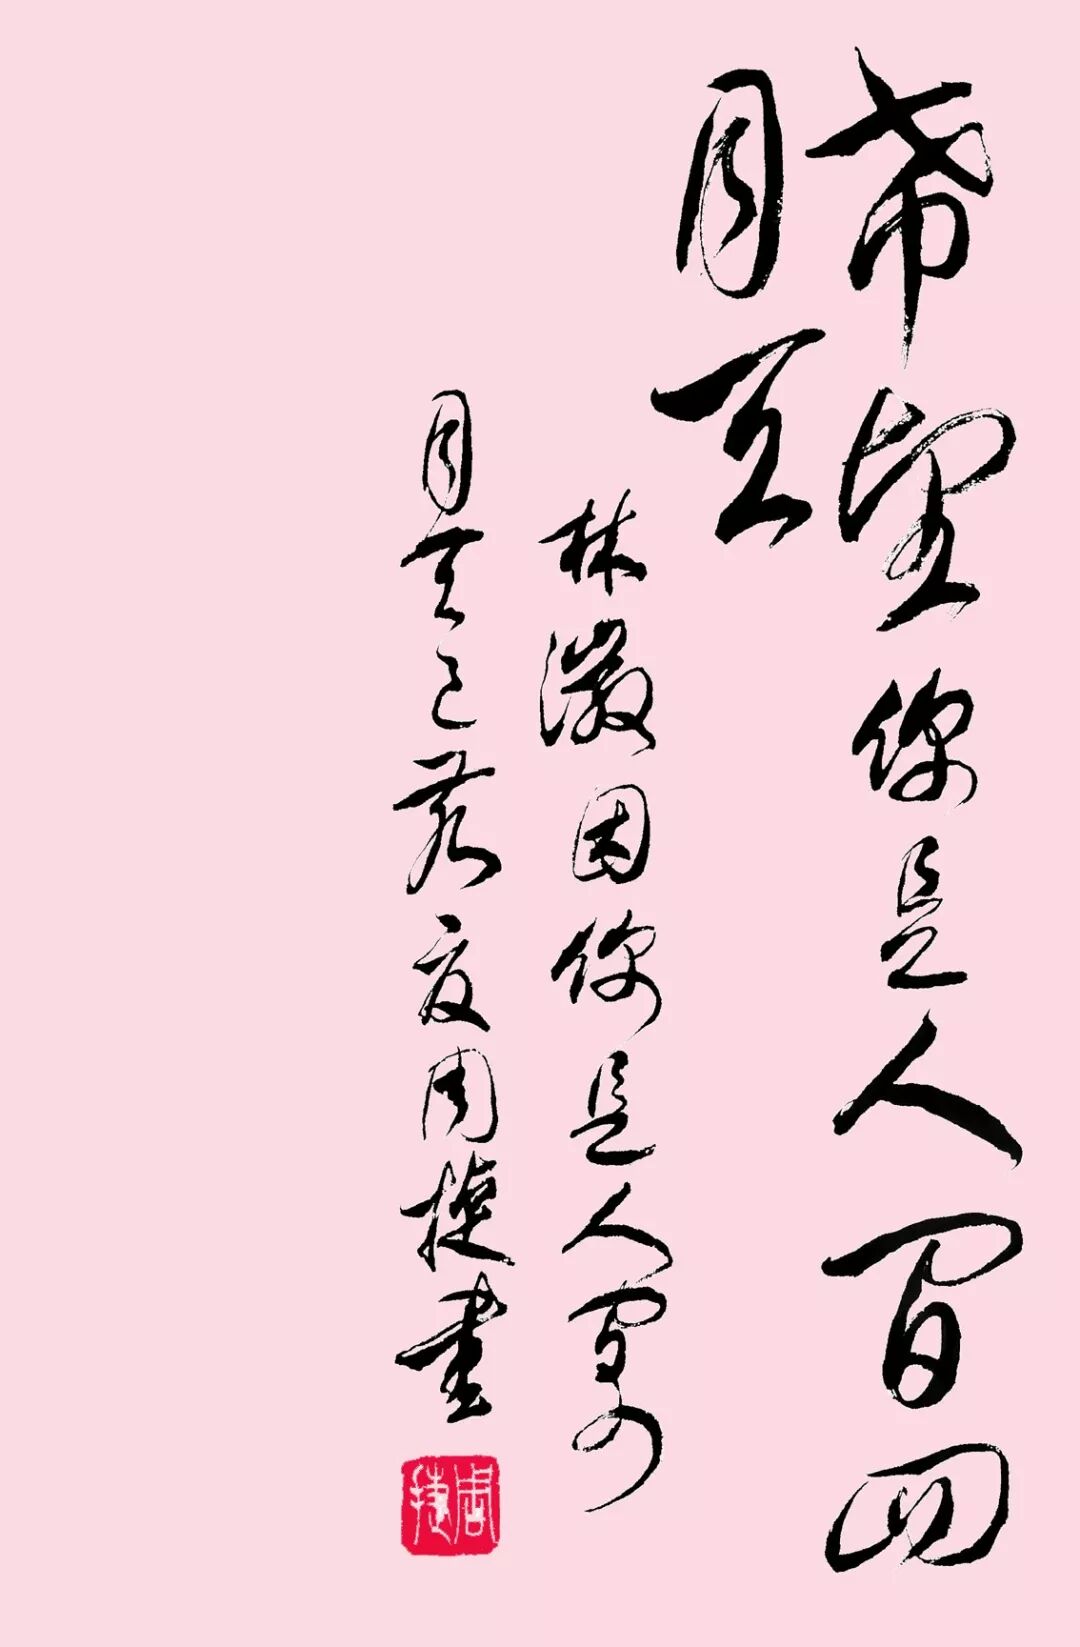 希望你是人间四
月天
林徽因你是人间四
月天夏周捷書
周捷